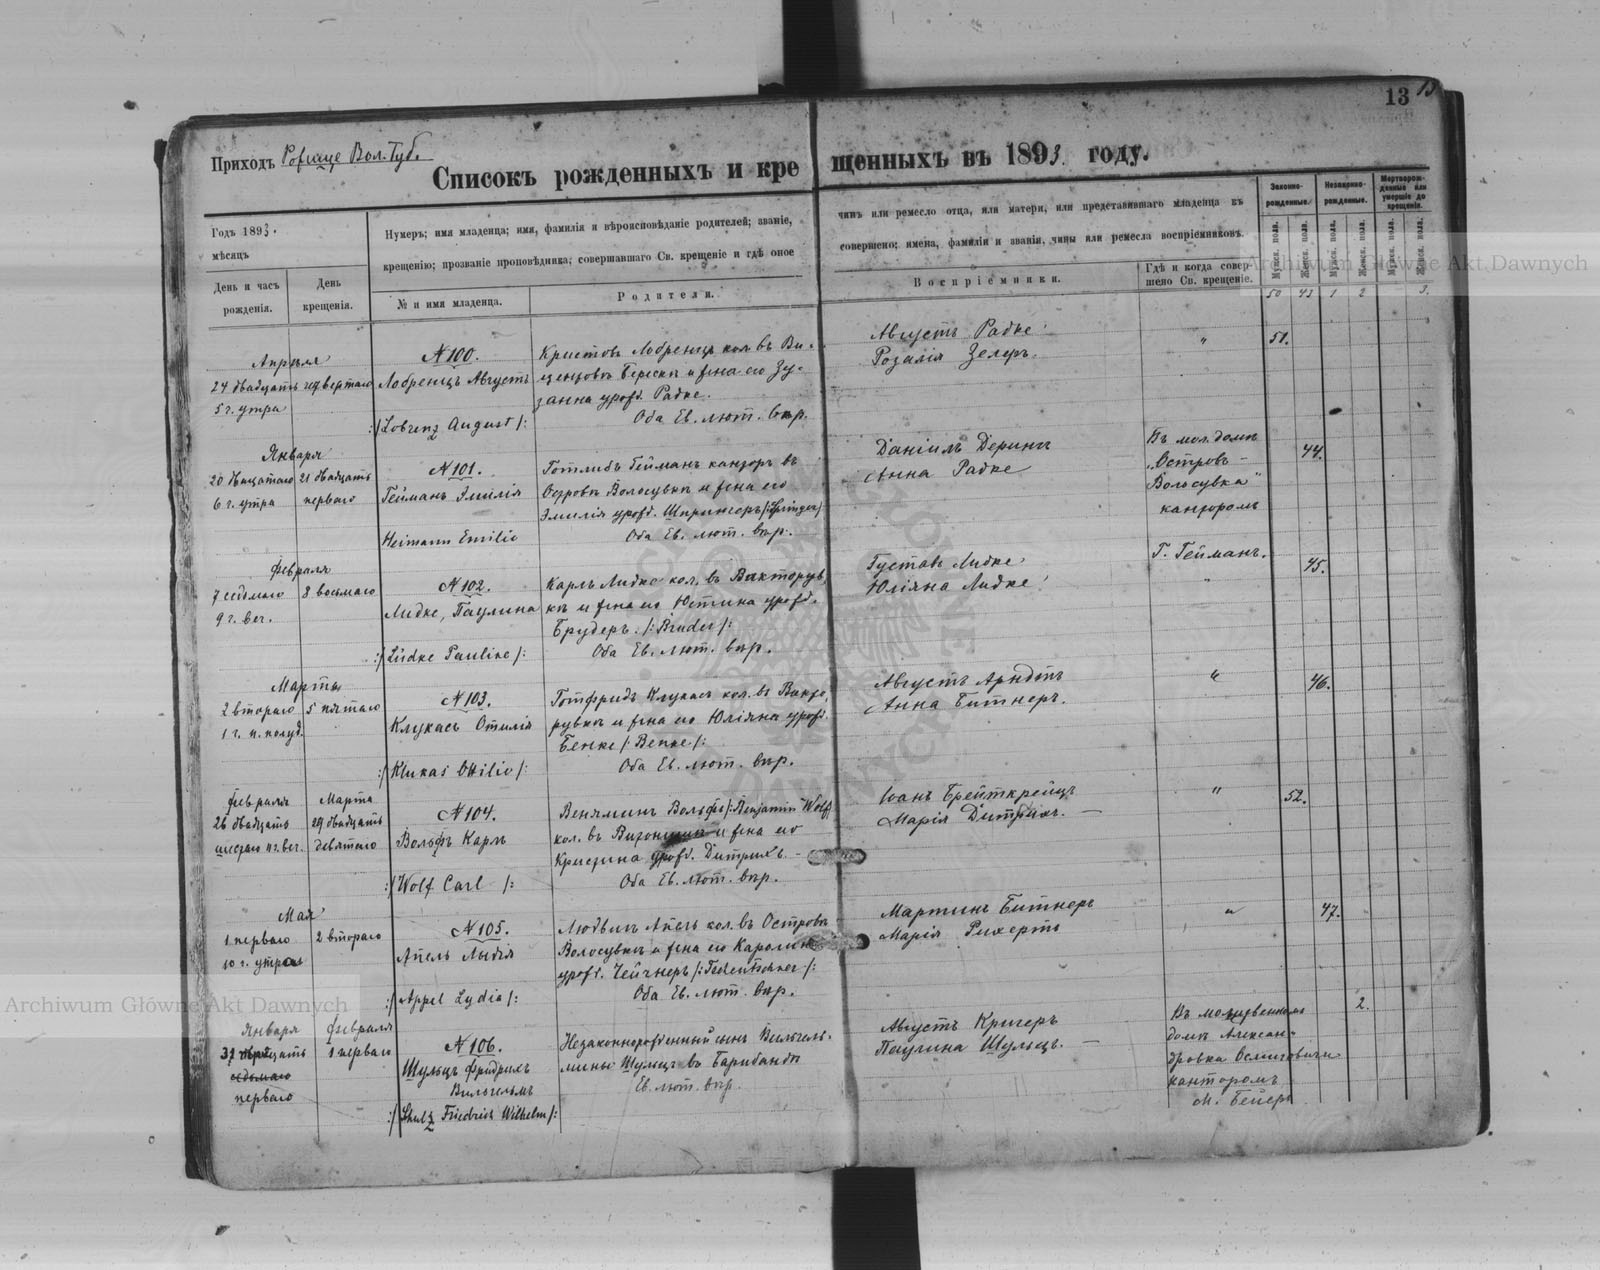 13 13
Приходъ Рожище Вол. Губ.
Списокъ рожденныхъ и крещенныхъ въ 1893 году.
Годъ 1893.
мѣсяцъ
День и часъ рожденія.
День крещенія.
Нумеръ; имя младенца; имя, фамилія и вѣроисповѣданіе родителей; званіе, чинъ или ремесло отца, или матери, или представившаго младенца къ
крещенію; прозваніе проповѣдника, совершавшаго Св. крещеніе и гдѣ оное совершено; имена, фамиліи и званія, чины или ремесла воспріемниковъ.
№ и имя младенца.
Родители.
Воспріемники.
Гдѣ и когда совершено Св. крещеніе.
Законнорожденные.
Незаконнорожденные.
Мертворожденные или умершіе до крещенія.
Мужск. пола.
Женск. пола.
Мужск. пола.
Женск. пола.
Мужск. пола.
Женск. пола.
50 43 1 2 3.
Апрѣля
24 двадцать четвертаго
5 г. утра
N 100.
Лобренцъ Августъ
:/Lobrenz August/:
Кристовъ Лобренцъ кол. въ Ви-
ценовкѣ Береск и жена его Зу-
занна урожд. Радке.
Оба Ев. лют. вѣр.
Августъ Радке
Розалія Зелеръ.
"
51.
Января
20 двацатаго
6 г. утра
21 двадцать
перваго
N 101.
Гейманъ Эмилія
Heimann Emilie
Готлибъ Гейманъ канторъ въ
Островѣ Волосувкѣ и жена его
Эмилія урожд. Шпрингеръ /:Springer/:
Оба Ев. лют. вѣр.
Даніилъ Дерингъ
Анна Радке
Въ мол. домѣ
„Островъ-
Волосувка"
канторомъ
Г. Гейманъ.
44.
Февраля
7 седьмаго
9 г. веч.
8 восьмаго
N 102.
Лидке, Паулина
:/Lüdke Pauline/:
Карлъ Лидке кол. въ Викторув-
кѣ и жена его Юстина урожд.
Брудеръ. /:Bruder/:
Оба Ев. лют. вѣр.
Густавъ Лидке
Юліяна Лидке
"
45.
Марта
2 втораго
1 г. п. полуд.
5 пятаго
N 103.
Клукасъ Отилія
:/Klukas Ottilie/:
Готфридъ Клукасъ кол. въ Викто-
рувкѣ и жена его Юліяна урожд.
Бенке /:Benke/:
Оба Ев. лют. вѣр.
Августъ Арндтъ
Анна Битнеръ.
"
46.
Февраля
26 двадцать
шестаго 11 г. веч.
Марта
29 двадцать
девятаго
N 104.
Вольфъ Карлъ
:/Wolf Carl/:
Веняминъ Вольфъ /:Benjamin Wolf/
кол. въ и жена его
Кристина урожд. Дитрихъ.-
Оба Ев. лют. вѣр.
Іоанъ Брейткрейцъ
Марія Дитрихъ.-
"
52.
Мая
1 перваго
10 г. утра
2 втораго
N 105.
Апель Лидія
:/Appel Lydia/:
Людвигъ Апель кол. въ Островѣ
Волосувкѣ и жена его Каролина
урожд. Чейчнеръ
Оба Ев. лют. вѣр.
Мартинъ Битнеръ
Марія Рихертъ
"
47.
Января
31 тридцать
седьмаго
перваго
Февраля
1 перваго
N 106.
Шульцъ Фридрихъ
Вильгельмъ
:/Shulz Friedrich Wilhelm/:
Незаконнорожденный сынъ Вильгель-
мины Шульцъ въ Барибандѣ
Ев. лют. вѣр.
Августъ Кригеръ
Паулина Шульцъ.-
Въ молитвенномъ
домѣ Алексан-
дровка Осмиговичи
канторомъ
М. Бейеръ
2.
Archiwum Główne Akt Dawnych
Archiwum Główne Akt Dawnych